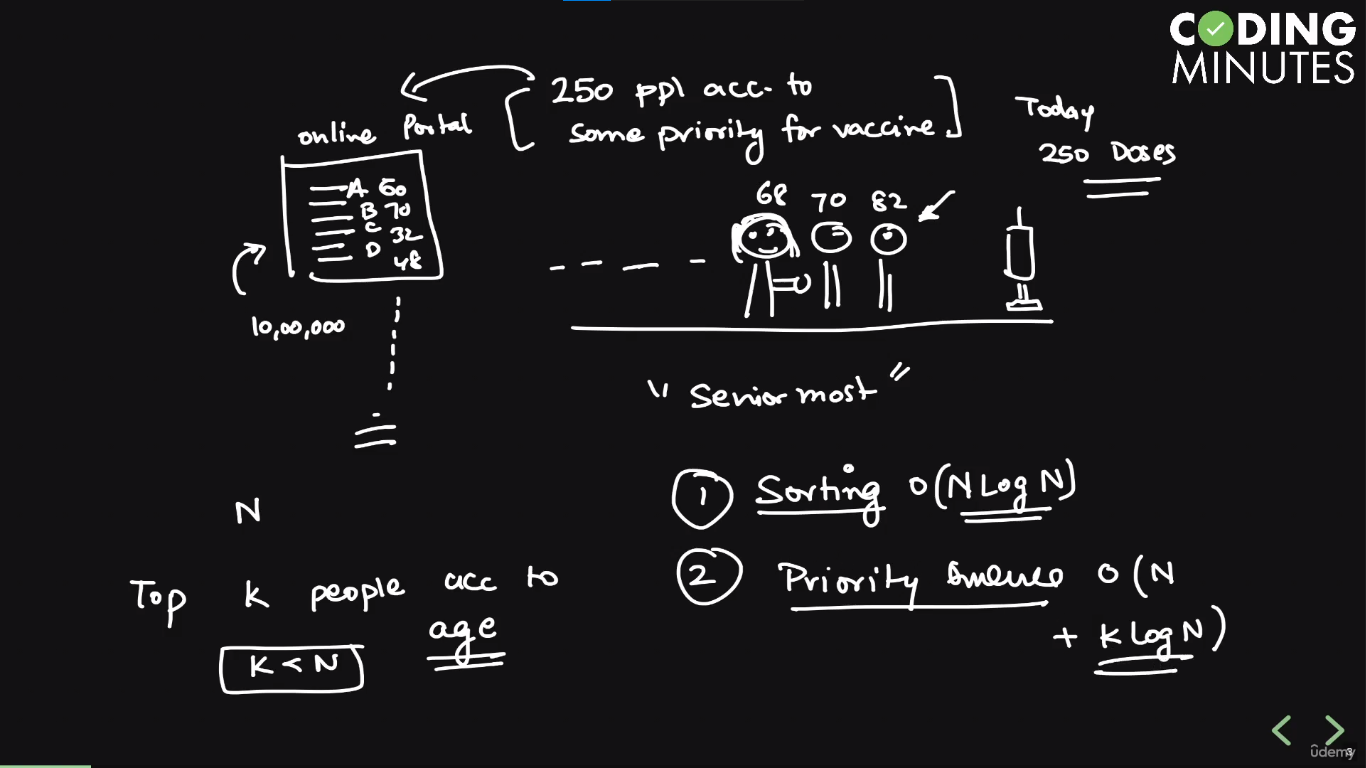 CODING
MINUTES
250 ppl acc. to
some priority for vaccine
Today
250 Doses
online Portal
A 60
B 70
C 32
D 48
10,00,000
68 70 82
" Senior most "
N
Top K people acc to
age
K < N
1 Sorting O(N Log N)
2 Priority O(N
+ K Log N)
ûdemy
3